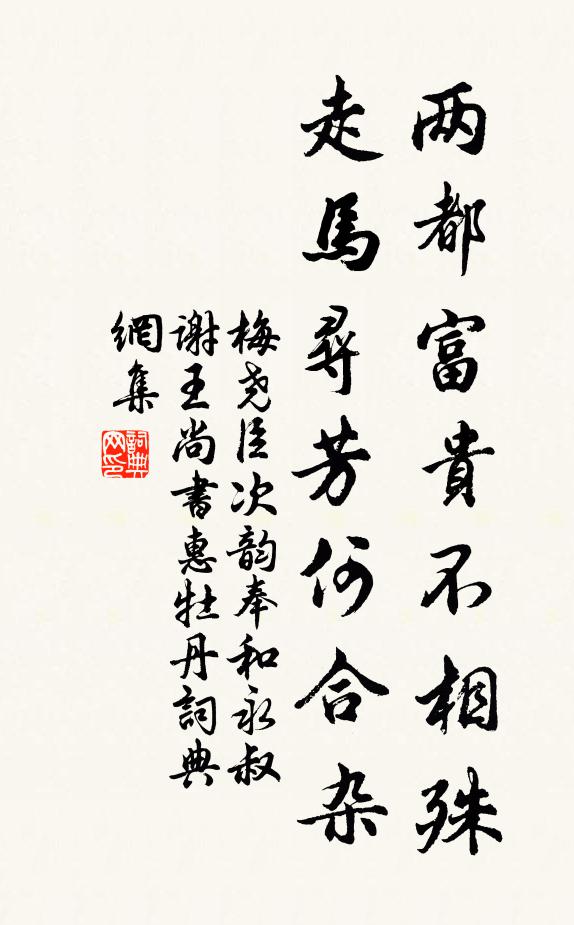 两都富貴不相殊
走馬尋芳何合杂
梅尧臣次韵奉和永叔
谢王尚書惠牡丹詞典
網集
詞典
网印